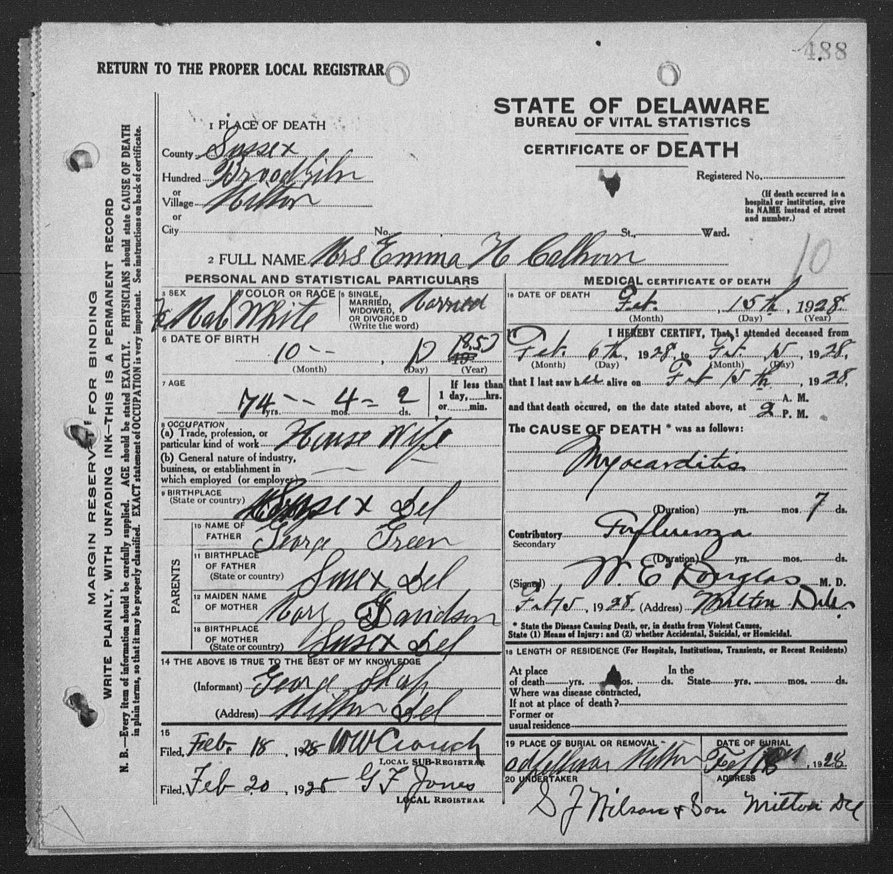 488
RETURN TO THE PROPER LOCAL REGISTRAR
STATE OF DELAWARE
BUREAU OF VITAL STATISTICS
CERTIFICATE OF DEATH
1 PLACE OF DEATH
County Sussex
Hundred
or
Village Milton
or
City No. St., Ward.
Registered No.
(If death occurred in a
hospital or institution, give
its NAME instead of street
and number.)
2 FULL NAME Mrs Emma H Calhoun
10
PERSONAL AND STATISTICAL PARTICULARS
3 SEX
4 COLOR OR RACE White
5 SINGLE,
MARRIED,
WIDOWED,
OR DIVORCED
(Write the word)
Married
6 DATE OF BIRTH
10
(Month) (Day) (Year)
7 AGE
74 yrs. 4 mos. 2 ds.
If less than
1 day, hrs.
or min.
8 OCCUPATION
(a) Trade, profession, or
particular kind of work House Wife
(b) General nature of industry,
business, or establishment in
which employed (or employer)
9 BIRTHPLACE
(State or country) Sussex Del
PARENTS
10 NAME OF
FATHER George Green
11 BIRTHPLACE
OF FATHER
(State or country) Sussex Del
12 MAIDEN NAME
OF MOTHER Mary Davidson
13 BIRTHPLACE
OF MOTHER
(State or country) Sussex Del
14 THE ABOVE IS TRUE TO THE BEST OF MY KNOWLEDGE
(Informant) George
(Address) Milton Del
15
Filed, Feb. 18, 1928 WW Crouch
LOCAL SUB-REGISTRAR
Filed, Feb 20, 1928 G F Jones
LOCAL REGISTRAR
MEDICAL CERTIFICATE OF DEATH
16 DATE OF DEATH
Feb. 15th, 1928.
(Month) (Day) (Year)
17 I HEREBY CERTIFY, That I attended deceased from
Feb. 6th, 1928, to Feb. 15, 1928,
(Month) (Day) (Month) (Day)
that I last saw her alive on Feb 15th, 1928
and that death occurred, on the date stated above, at 2 A. M.
P. M.
The CAUSE OF DEATH * was as follows:
Myocarditis
(Duration) yrs. mos. 7 ds.
Contributory Influenza
Secondary
(Duration) yrs. mos. ds.
(Signed) W. E. Douglas M. D.
Feb 15, 1928. (Address) Milton Del.
* State the Disease Causing Death, or, in deaths from Violent Causes,
State (1) Means of Injury: and (2) whether Accidental, Suicidal, or Homicidal.
18 LENGTH OF RESIDENCE (For Hospitals, Institutions, Transients, or Recent Residents)
At place In the
of death yrs. mos. ds. State yrs. mos. ds.
Where was disease contracted,
If not at place of death?
Former or
usual residence
19 PLACE OF BURIAL OR REMOVAL
Milton
DATE OF BURIAL
Feb 18, 1928
20 UNDERTAKER
S J Wilson & Son
ADDRESS
Milton Del
MARGIN RESERVED FOR BINDING
WRITE PLAINLY, WITH UNFADING INK—THIS IS A PERMANENT RECORD
N. B.—Every item of information should be carefully supplied. AGE should be stated EXACTLY. PHYSICIANS should state CAUSE OF DEATH
in plain terms, so that it may be properly classified. EXACT statement of OCCUPATION is very important. See instructions on back of certificate.